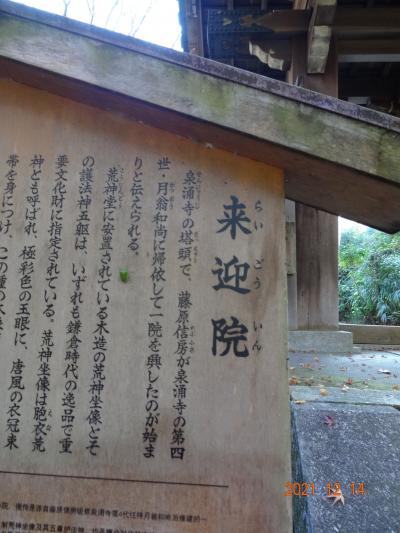 来迎院
らいごういん
泉涌寺の塔頭で、藤原信房が泉涌寺の第四
世・月翁和尚に帰依して一院を興したのが始ま
りと伝えられる。
荒神堂に安置されている木造の荒神坐像とそ
の護法神五躯は、いずれも鎌倉時代の逸品で重
要文化財に指定されている。荒神坐像は胞衣荒
神とも呼ばれ、極彩色の玉眼に、唐風の衣冠束
帯を身につけ、この種の
2021 12 14